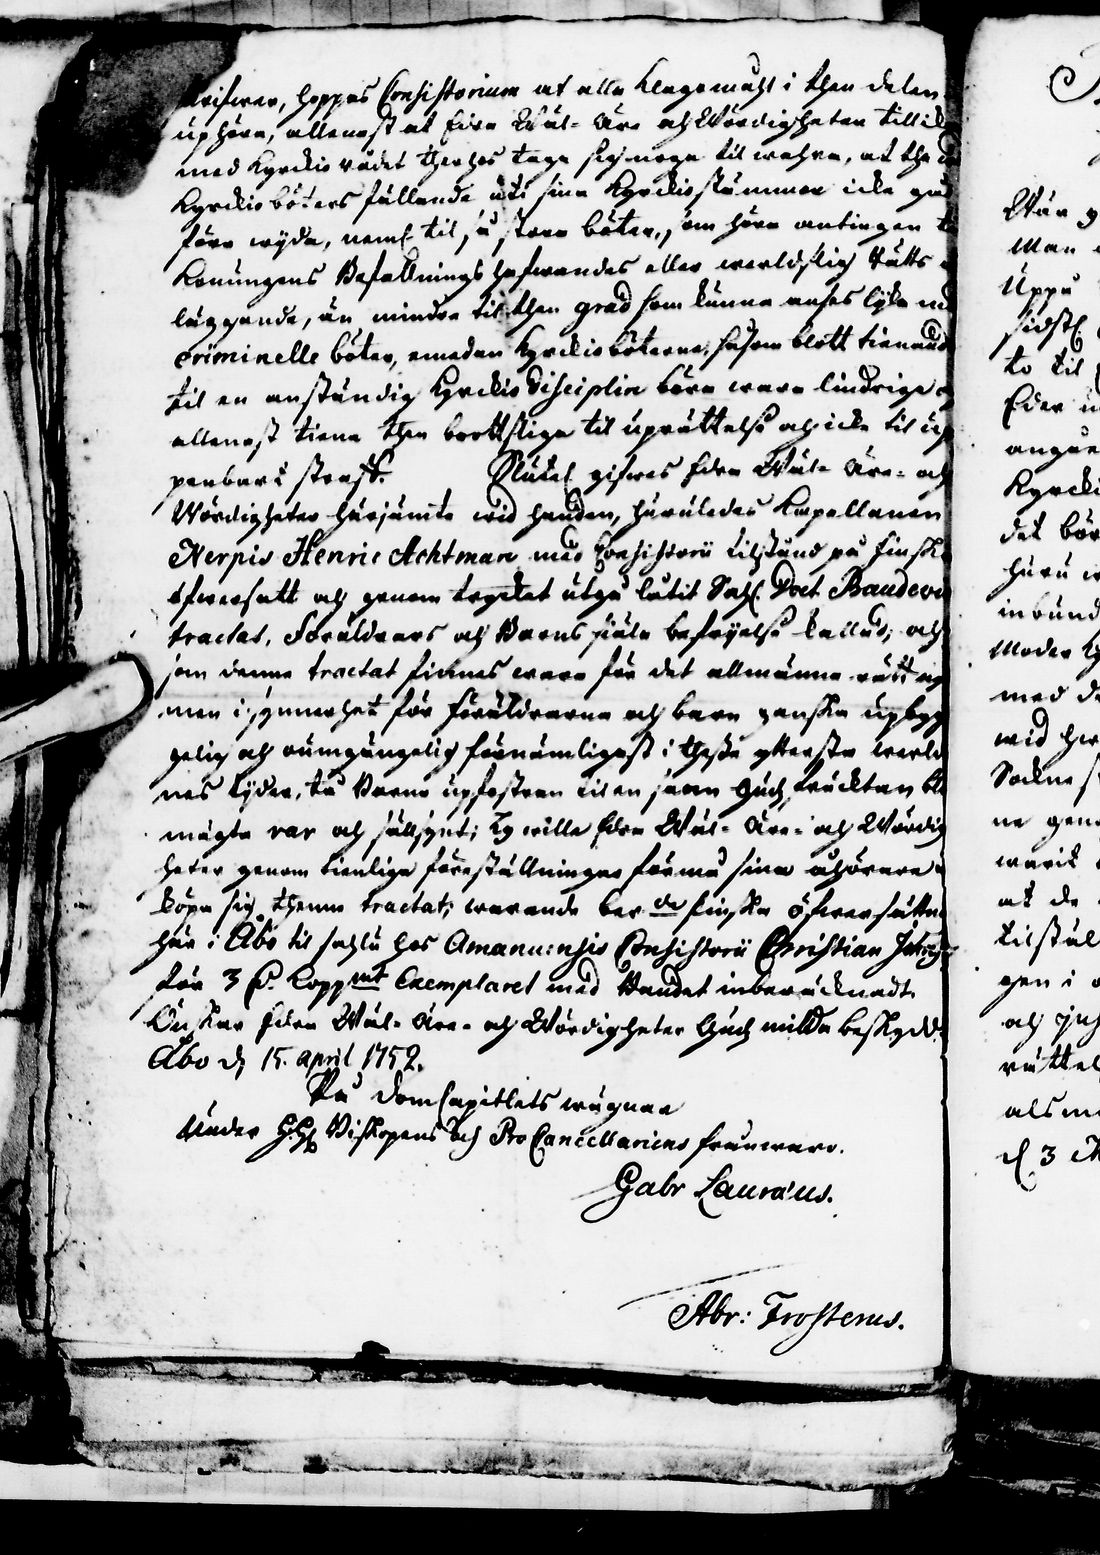 skrifwer, hoppas Consistorium at alla klagomåhl i then delen
uphöra, allenast at Edra Wäl- Äre- och Wördigheter tillika
med kyrckio rådet therhos taga sig noga til wahra, at the
Kyrckio böters fällande uti sina Kyrckiostämmor icke gå
före wyda, neml. til så stora böter, som höra antingen
Konungens Befallningshafwandes eller werldslig Rätts
läggande, än mindre til then grad som kunna anses lyka med
criminelle böter, emedan Kyrckioböterne, såsom blott tienande
til en anständig Kyrckio Disciplin böra wara lindriga
allenast tiena then brottsliga til uprättelse och icke til up
penbart straff. Slutel. gifwes Edra Wäl- Äre- och
Wördigheter härjämte wid handen, huruledes Capellanen
Nerpis Henric Achtman med Consistorii tilstånd på Finska
öfwersatt och genom trycket utgå låtit Sahl. Doct. Baudewi
tractat, Föräldrars och Barns siäla befryelse kallad; och
som denne tractat finnes wara för det allmänna
men i synnerhet för föräldrarna och barn ganska upbyg
gelig och oumgängelig förnämligast i thessa yttersta werld
nes tyder, tå Barns upfostran til en sann Guds fruchtan
mägta rar och sällsynt; Ty wille Edra Wäl- Äre- och Wördig
heter genom tienliga föreställningar förmå sina åhörare
köpa sig thenna tractat; warande be:rde finska öfwersättn
här i Åbo til sahlu hos Amanuensis Consistorii Christian
för 3 d. Koppmt Exemplaret med Bandet inberäcknadt.
Önskar Edra Wäl- Äre- och Wördigheter Guds milda beskydd.
Åbo d. 15. April 1752.
På DomCapitlets wägnar
Under H.H. Biskopens och ProCancellariens frånwaro.
Gabr Lauræus.
Abr: Frosterus.
Wår
Man
Uppå
sidstl.
to til
Eder
Kyrcki
det bör
huru
inbund
Moder
med
wid
Sockne
ne
at de
tilstäl
gen i
och
rättel
d. 3